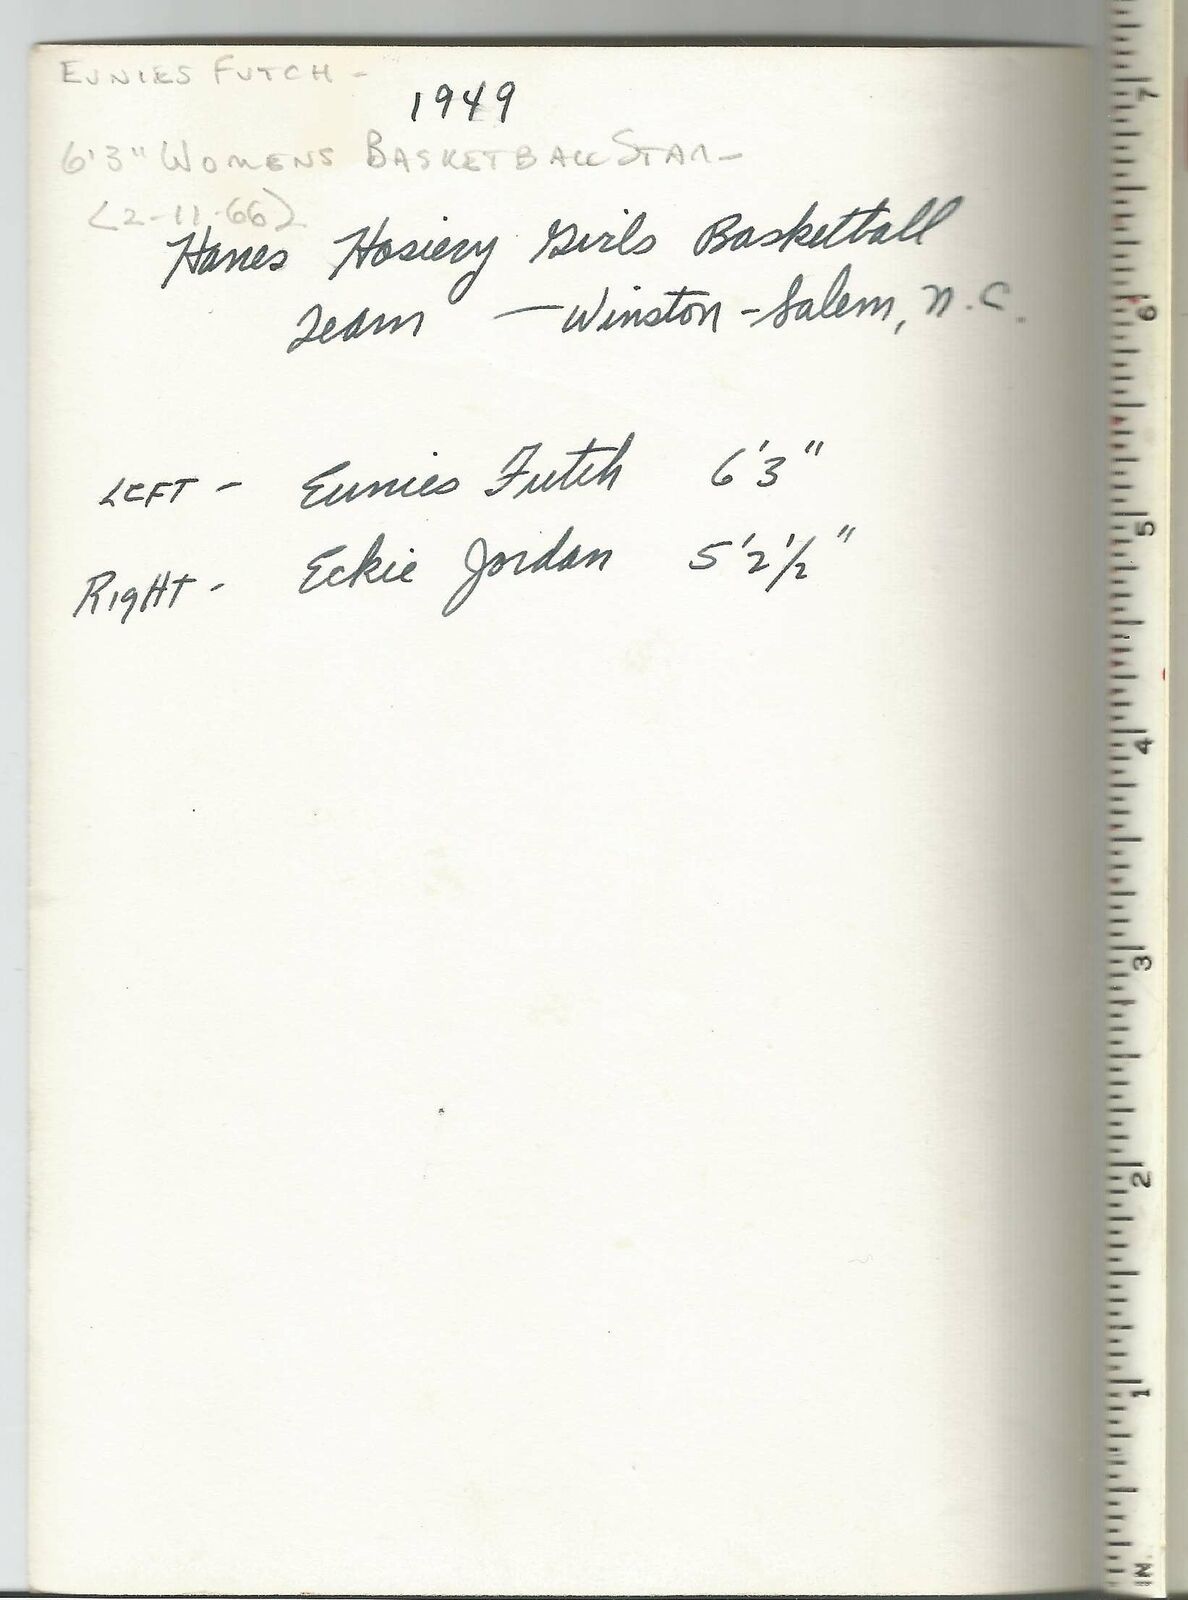 EUNIES FUTCH -
1949
6'3" WOMENS BASKETBALL STAR -
(2-11-66)
Hanes Hosiery Girls Basketball
Team — Winston-Salem, N.C.
LEFT - Eunies Futch 6'3"
RigHT - Eckie Jordan 5'2 1/2"
7
6
5
4
3
2
1
IN